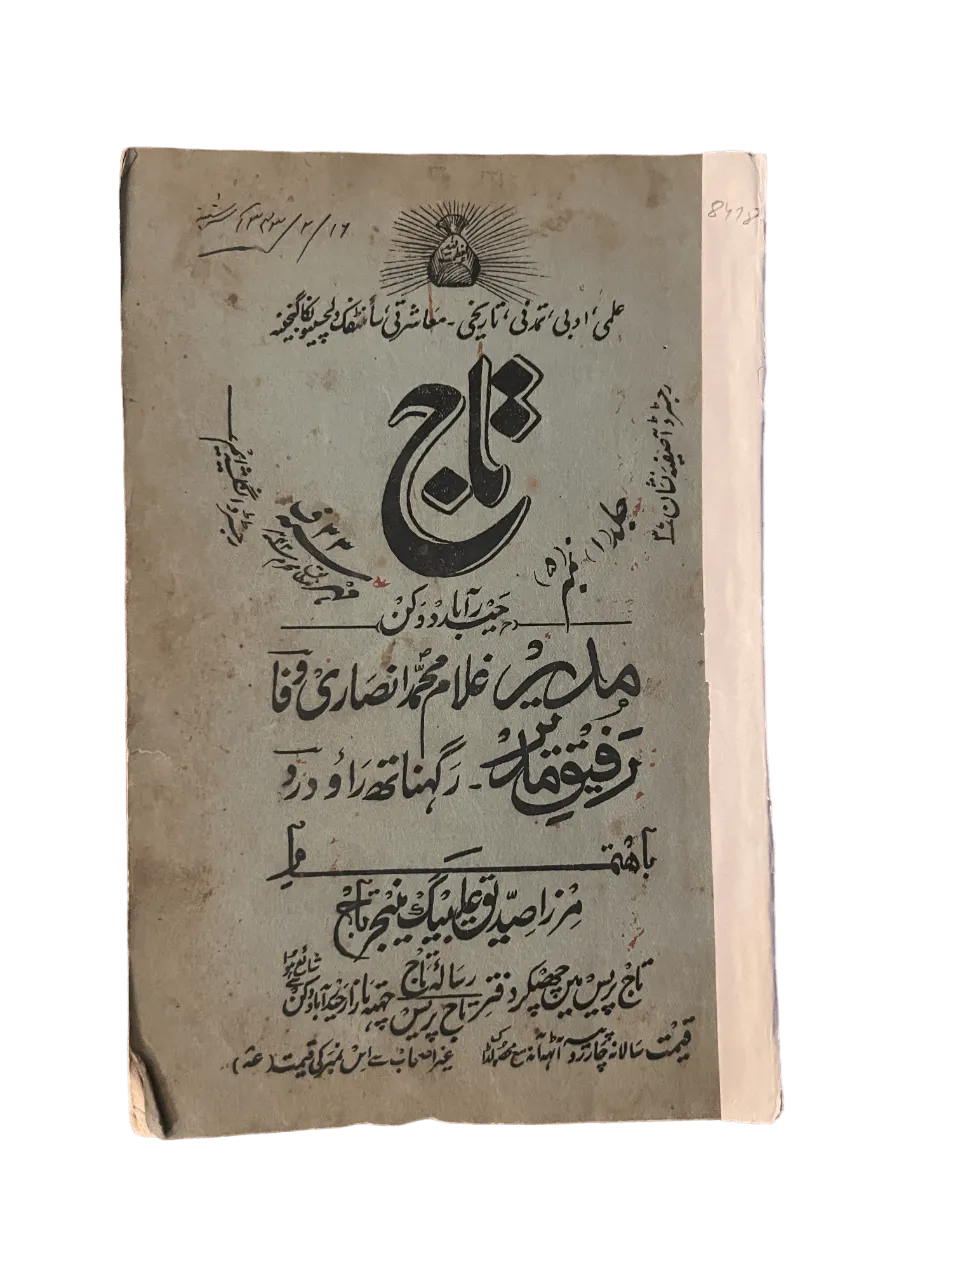 8418
۱۶/۲/۱۳۴۳
علمی، ادبی، تمدنی، تاریخی۔ معاشرتی، سائنٹفک دلچسپیونکا گنجینہ
تاج
رجسٹرڈ آصفیہ نشان
جلد (۱) نمبر (۵)
۳۳ ف
حیدرآباد دکن
مدیر غلام محمد انصاری وفا
رفیق مدیر۔ رگھناتھ راؤ درد
باہتمام
مرزا صدیق علی بیگ منیجر تاج
تاج پریس میں چھپکر دفتر رسالہ تاج تاج پریس چھتہ بازار حیدرآباد دکن سے شائع ہوا
قیمت سالانہ چار روپیہ آٹھ آنہ مع محصولڈاک غیر اصحاب سے اس نمبر کی قیمت